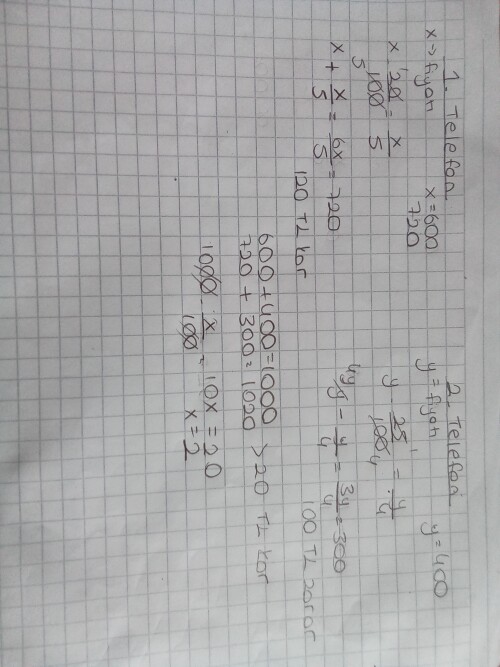 1. Telefon
x → fiyatı x = 600
720
x · 20/100 = x/5
5
x + x/5 = 6x/5 = 720
120 TL kar
2. Telefon
y = fiyatı y = 400
y · 25/100 = y/4
1
4
4y/y - y/4 = 3y/4 = 300
100 TL zarar
600 + 400 = 1000
720 + 300 = 1020 > 20 TL kar
1000 · x/100 = 10x = 20
x = 2